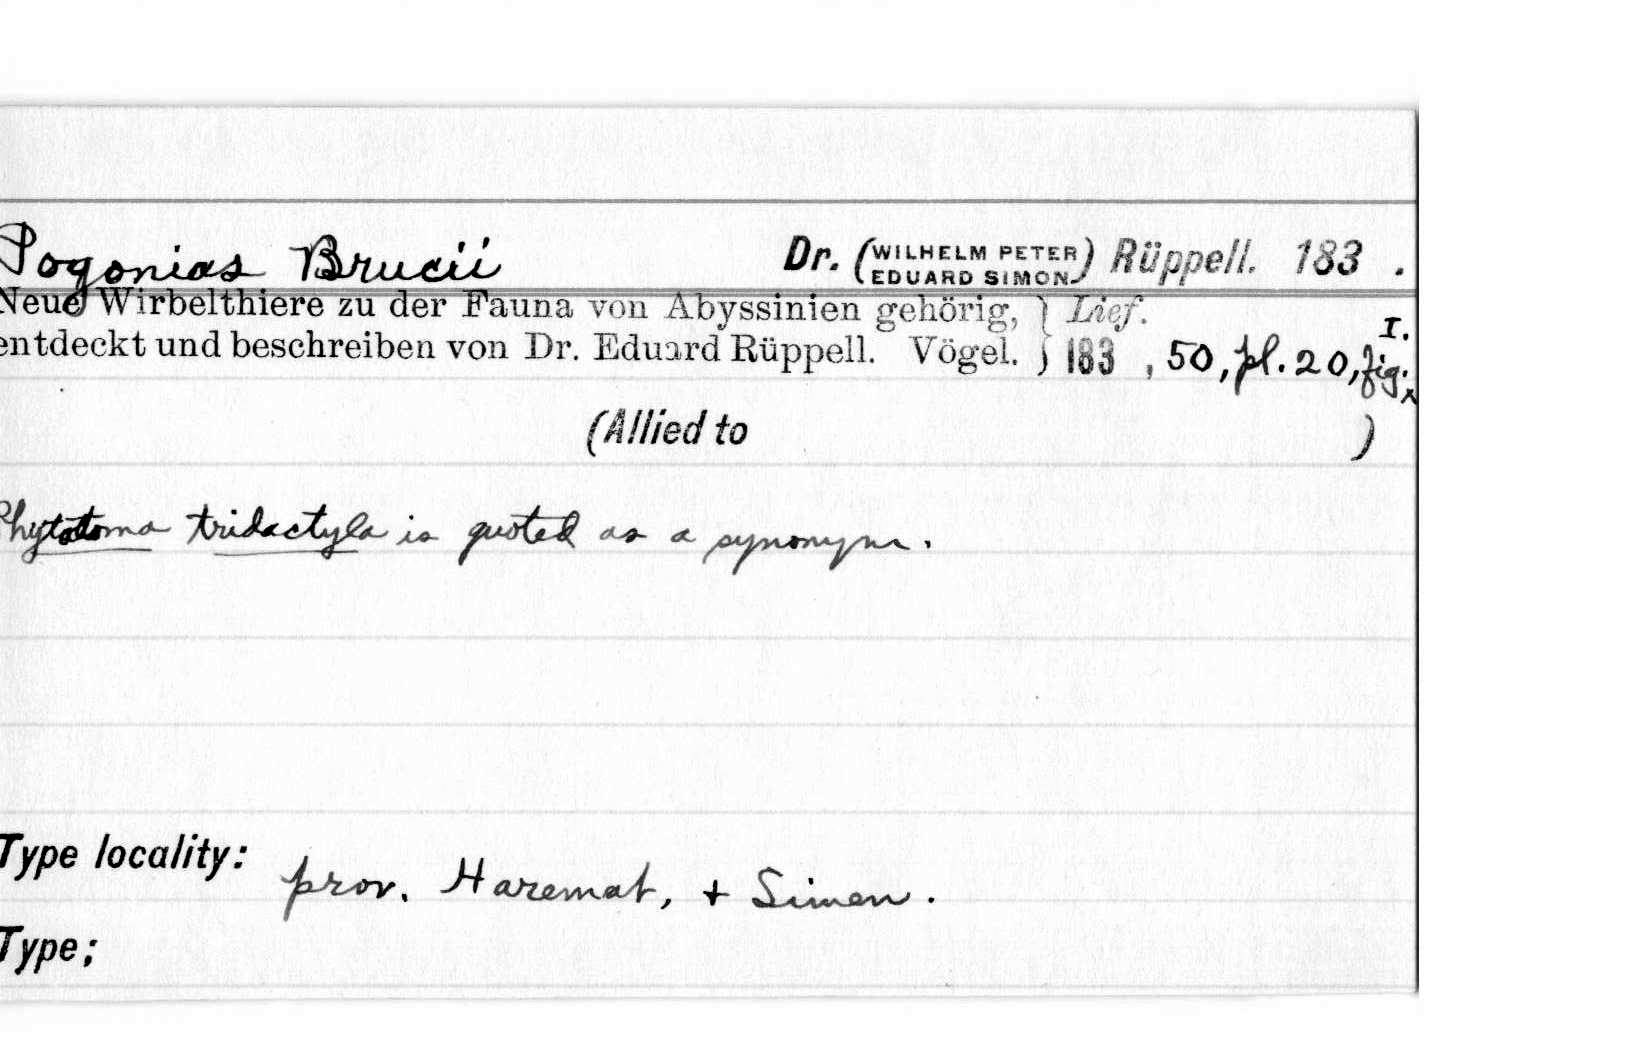 Pogonias Brucii Dr. (WILHELM PETER EDUARD SIMON) Rüppell. 183 .
Neue Wirbelthiere zu der Fauna von Abyssinien gehörig, } Lief.
entdeckt und beschreiben von Dr. Eduard Rüppell. Vögel. } 183 , 50, pl. 20, fig. I.
(Allied to )
Phytotoma tridactyla is quoted as a synonym.
Type locality: prov. Haremat, + Simen.
Type;